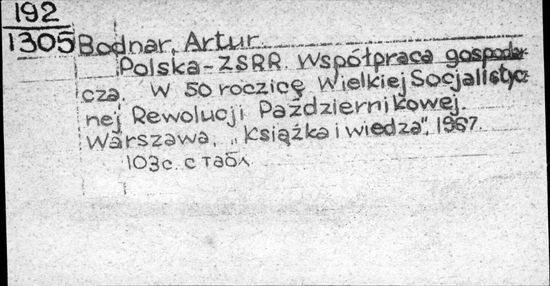 192
1305 Bodnar, Artur
Polska-ZSRR. Współpraca gospodar
cza. W 50 roczicę Wielkiej Socjalistycz
nej Rewolucji Październikowej.
Warszawa, „Książka i wiedza", 1967.
103с. с табл